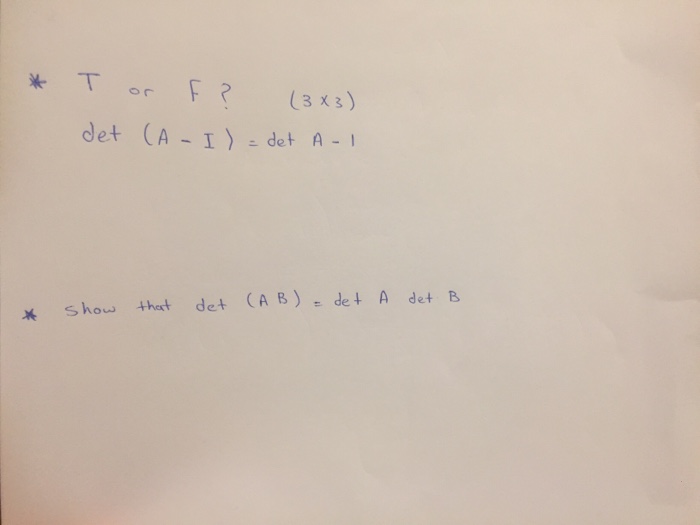 * T or F? (3x3)
det (A - I) = det A - 1
* show that det (AB) = det A det B